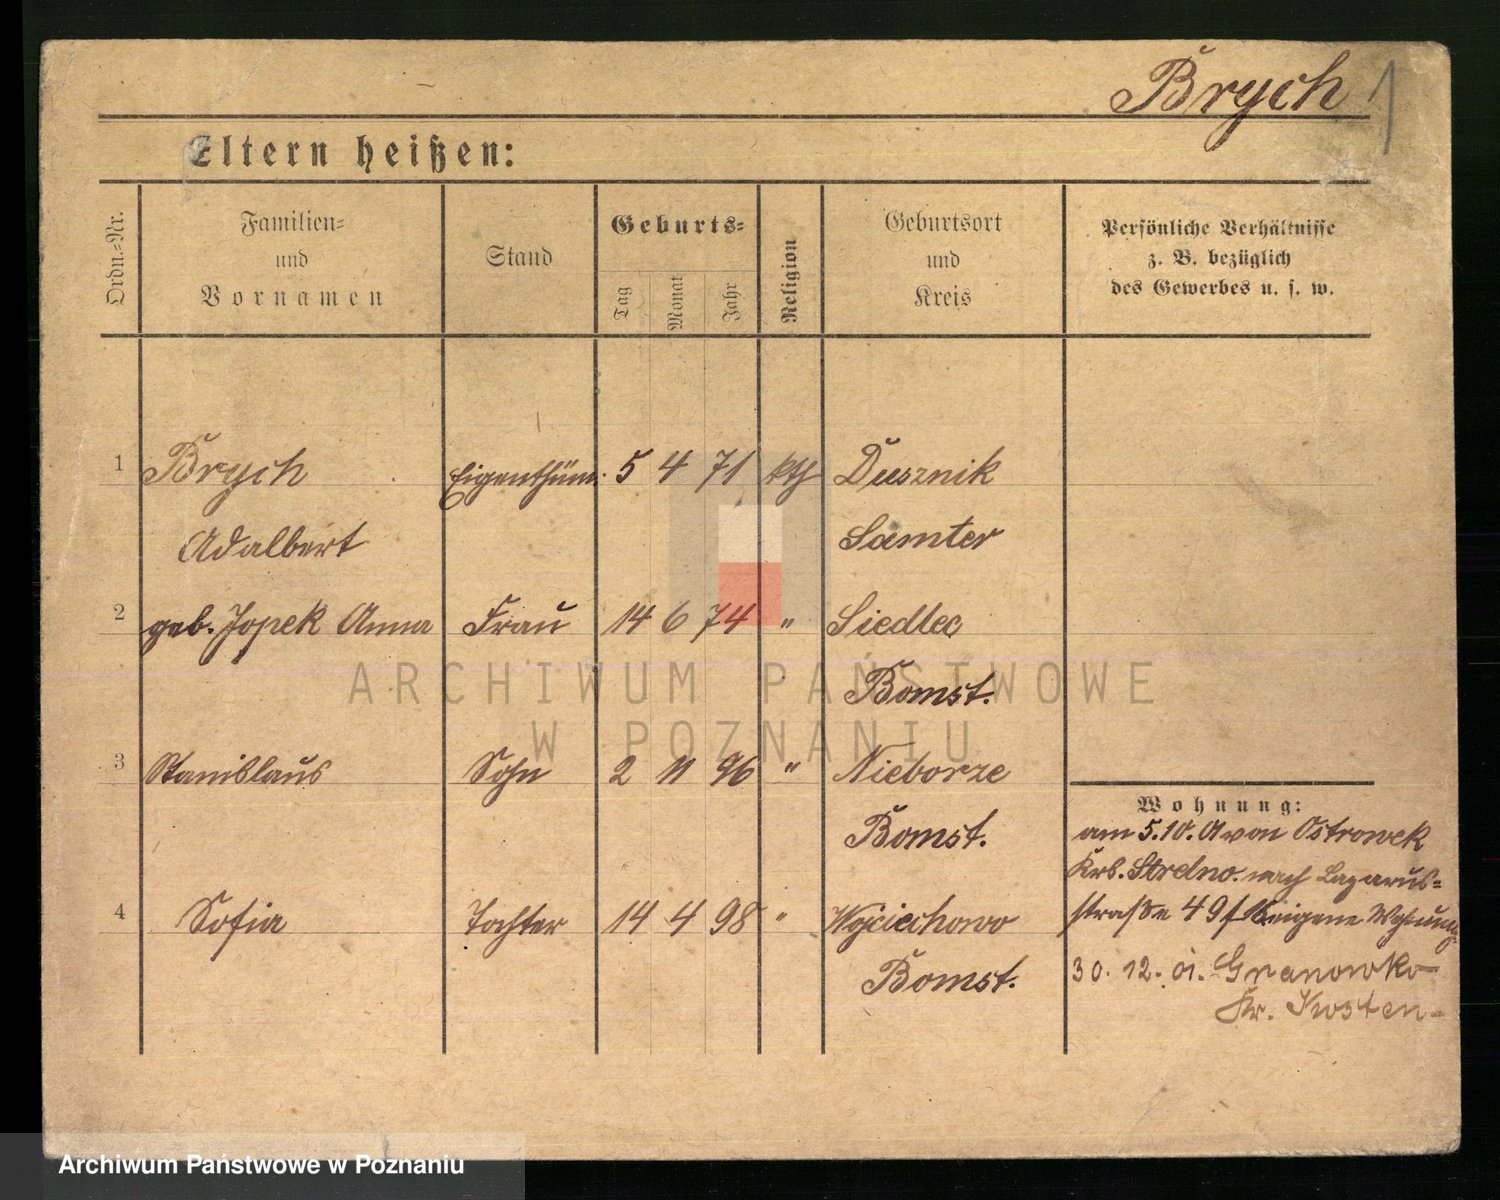 Brych 1
Eltern heißen:
Ordn.=Nr.
Familien=
und
Vornamen
Stand
Geburts=
Tag
Monat
Jahr
Religion
Geburtsort
und
Kreis
Persönliche Verhältnisse
z. B. bezüglich
des Gewerbes u. s. w.
1 Brych Eigenthüm. 5 4 71 kth Dusznik
Adalbert Samter
2 geb. Jopek Anna Frau 14 6 74 " Siedlec
Bomst.
3 Stanislaus Sohn 2 11 96 " Nieborze
Bomst.
4 Sofia Tochter 14 4 98 " Wojciechowo
Bomst.
Wohnung:
am 5.10.01 von Ostrowek
Krs. Strelno. nach Lazarus=
straße 49 eigene Wohnung
30. 12. 01. Granowko
Kr. Kosten-
ARCHIWUM PAŃSTWOWE
W POZNANIU
Archiwum Państwowe w Poznaniu